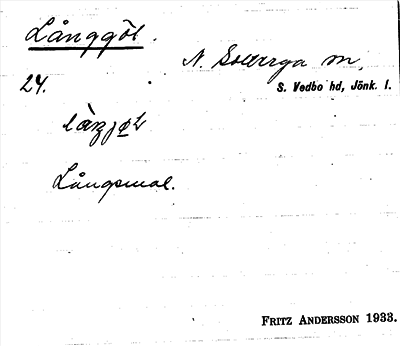 Långgöl.
N. Solberga sn,
24.
S. Vedbo hd, Jönk. l.
Långsmal.
FRITZ ANDERSSON 1933.